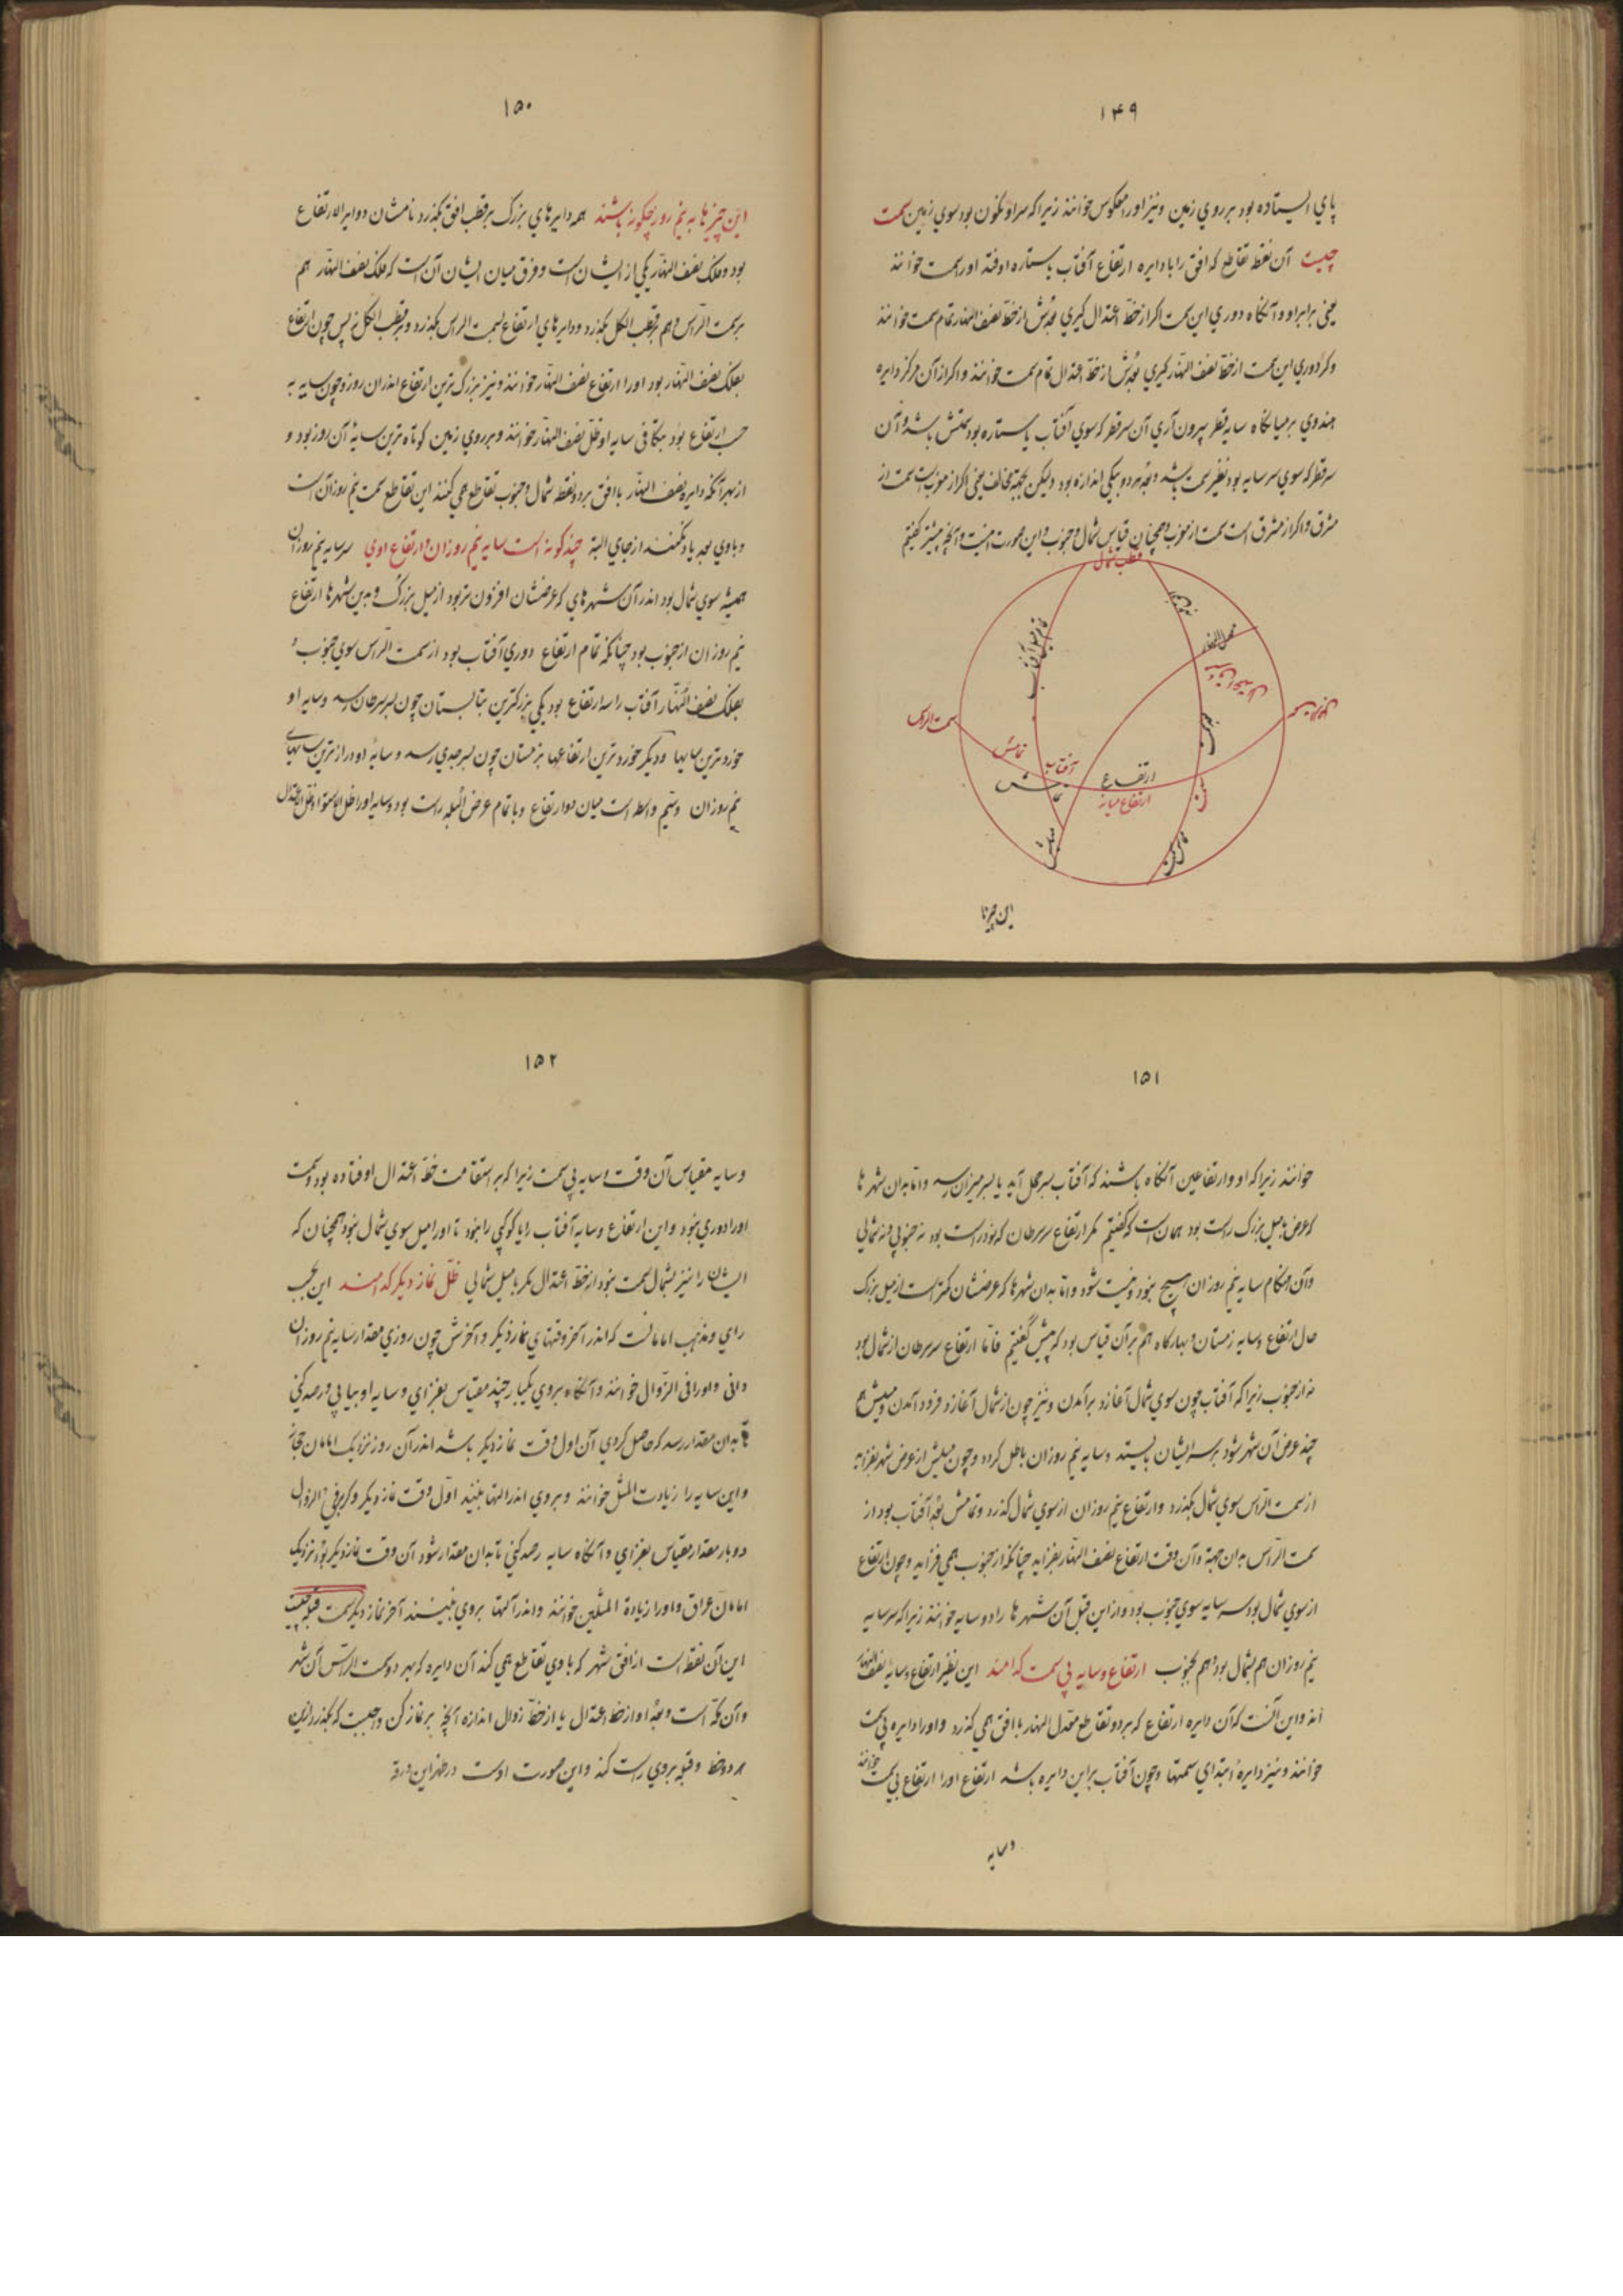 ۱۴۹
پای ایستاده بود بر روی زمین و نیز او را معکوس خوانند زیرا که سر او نکون بود سوی زمین سمت
چیست آن نقطه تقاطع که افق را با دایره ارتفاع آفتاب یا ستاره اوفتد او را سمت خوانند
یعنی برابر او و آنگاه دوری این سمت اکر از خط اعتدال کیری بعدش از خط نصف النهار تمام سمت خوانند
وکر دوری این سمت از خط نصف النهار کیری بعدش از خط اعتدال تمام سمت خوانند و اکر از آن مرکز دایره
هندوی بر میانکاه سایه قطر بیرون آری آن سر قطر که سوی آفتاب یا ستاره بود سمتش باشد و آن
سر قطر که سوی سر سایه بود نظیر سمت باشد و بعد هر دو بیکی اندازه بود ولیکن بجهة مخالف یعنی اکر از مغرب است سمت از
مشرق و اکر از مشرق است سمت از مغرب و همچنان قیاس شمال و جنوب و این صورت اینست و آنچه پیشتر کفتیم
قطب شمال
معدل النهار
سمت الراس
تمامش
آفتاب
ارتفاع
ارتفاع میانه
سمت
میلش
این چیزها
۱۵۰
این چیزها به نیم روز چکونه باشند همه دایرهای بزرک بر قطب افق بکذرد نامشان دوایر الارتفاع
بود و فلک نصف النهار یکی از ایشان است و فرق میان ایشان آن است که فلک نصف النهار هم
بر سمت الرأس و هم بر قطب الکل بکذرد و دایرهای ارتفاع بسمت الراس بکذرد و بر قطب الکل نه پس چون ارتفاع
بفلک نصف النهار بود او را ارتفاع نصف النهار خوانند و نیز بزرک ترین ارتفاع اندر آن روز و چون سایه به
حسب ارتفاع بود مکافی سایه او ظل نصف النهار خوانند و بر روی زمین کوتاه ترین سایهٔ آن روز بود و
از بهر آنکه دایره نصف النهار با افق بر دو نقطه شمال و جنوب تقاطع همی کنند این تقاطع سمت نیم روز آن است
و با وی بعد یاد نکنند از جای البته چند کونه است سایه نیم روزان و ارتفاع اوی سر سایه نیم روزان
همیشه سوی شمال بود اندر آن شهرهای که عرضشان افزون تر بود از میل بزرک و بدین شهرها ارتفاع
نیم روزان از جنوب بود چنانکه تمام ارتفاع دوری آفتاب بود از سمت الراس سوی جنوب و
بفلک نصف النهار آفتاب را سه ارتفاع بود یکی بزرکترین بتابستان چون بسر سرطان رسد و سایه او
خورد ترین سایها و دیکر خورد ترین ارتفاعها بزمستان چون بسر جدی رسد و سایهٔ او دراز ترین سایهای
نیم روزان و سیم واسطه است میان دو ارتفاع و با تمام عرض البلد راست بود و سایه او را ظل الاستوا و ظل اعتدال
۱۵۱
خوانند زیرا که او و ارتفاعین آنکاه باشند که آفتاب بسر حمل آید یا بسر میزان رسد و اما بدان شهرها
که عرض با میل بزرک راست بود همان است که کفتیم مکر ارتفاع سر سرطان که نود راست بود نه جنوبی و نه شمالی
و آن هنکام سایه نیم روزان هیچ نبود و نیست شود و اما بدان شهرها که عرضشان کمتر است از میل بزرک
حال ارتفاع و سایه زمستان و بهارکاه هم بر آن قیاس بود که پیش کفتیم فاما ارتفاع سر سرطان از شمال بود
نه از جنوب زیرا که آفتاب چون سوی شمال آغازد برآمدن و نیز چون از شمال آغازد فرود آمدن و میلش هم
چند عرض آن شهر شود بر سر ایشان بایستد و سایه نیم روزان باطل کردد و چون میلش از عرض شهر بفزاید
از سمت الراس سوی شمال بکذرد و ارتفاع نیم روزان از سوی شمال کذرد و تمامش بعد آفتاب بود از
سمت الراس بدان جهة و آن وقت ارتفاع نصف النهار بفزاید چنانکه از جنوب همی فزاید و چون ارتفاع
از سوی شمال بود سر سایه سوی جنوب بود و از این قبل آن شهرها را دو سایه خوانند زیرا که سر سایه
نیم روزان هم بشمال بود و هم بجنوب ارتفاع و سایه بی سمت کدامند این نظیر ارتفاع و سایهٔ نصف النهار
اند و این آنست که آن دایره ارتفاع که بر دو تقاطع معدل النهار با افق همی کذرد و او را دایره بی سمت
خوانند و نیز دایرهٔ ابتدای سمتها و چون آفتاب بر این دایره باشد ارتفاع او را ارتفاع بی سمت خوانند
و سایه
۱۵۲
و سایه مقیاس آن وقت و سایه بی سمت زیرا که بر استقامت خط اعتدال اوفتاده بود و سمت
او را دوری نبود و این ارتفاع و سایه آفتاب را یا کوکبی را نبود تا او را میل سوی شمال نبود همچنان که
ایشان را نیز بشمال سمت نبود از خط اعتدال مکر با میل شمالی ظل نماز دیکر کدامند این بحسب
رای و مذهب امامانست که اندر آخر وقتهای نماز دیکر و آخرش چون روزی مقدار سایه نیم روزان
دانی و او را فی الزوال خوانند و آنکاه بر وی یکبار چند مقیاس بفزای و سایه او بیابی و رصد کنی
تا بدان مقدار رسد که حاصل کردی آن اول وقت نماز دیکر باشد اندر آن روز نزدیک امامان حجاز
و این سایه را زیادت المثل خوانند و بر وی اندر التها بنیند اول وقت نماز دیکر وکر بر فی الزوال
دو بار مقدار مقیاس بفزای و آنکاه سایه رصد کنی تا بدان مقدار شود آن وقت نماز دیکر بود نزدیک
امامان عراق و او را زیادة المثلین خوانند و اندر آلتها بر وی بنیسند آخر نماز دیکر سمت قبله چیست
این آن نقطه است از افق شهر که با وی تقاطع همی کند آن دایره که بهر دو سمت الراس آن شهر
و آن مکه است و بعد او از خط اعتدال یا از خط زوال اندازه آنچه بر نماز کن واجبست که بکذرد از این
هر دو خط و قبله بر وی راست کند و این صورت اوست در ظهر این ورقه